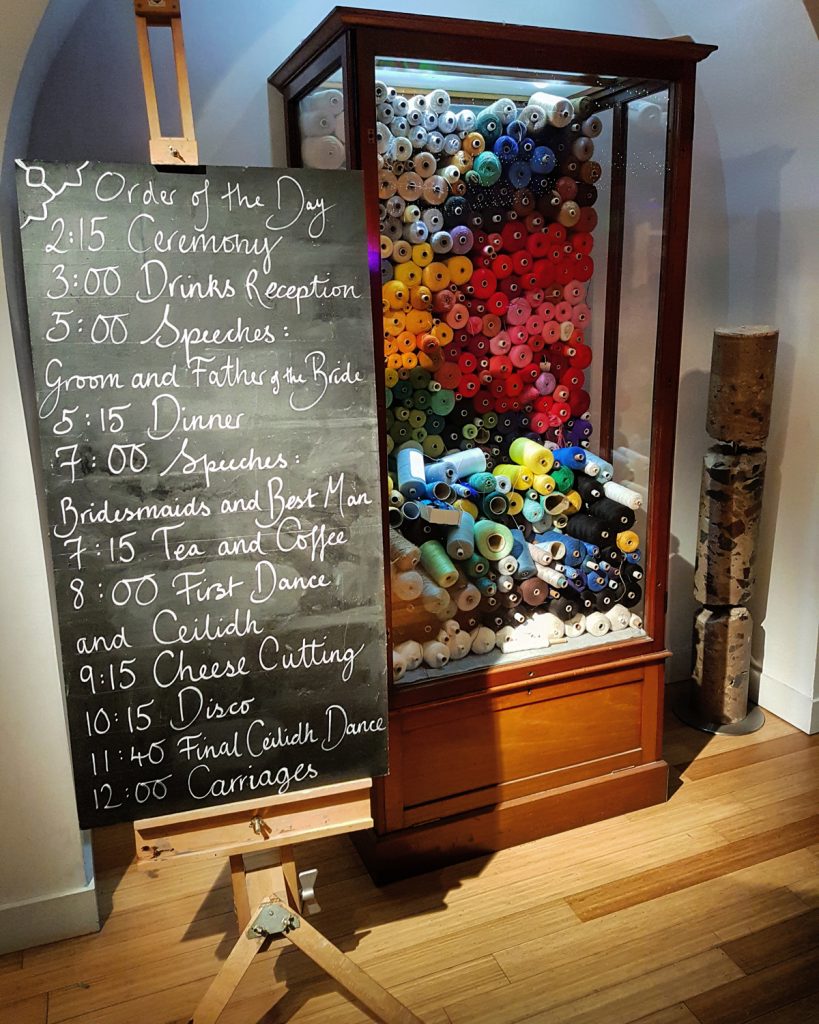 Order of the Day
2:15 Ceremony
3:00 Drinks Reception
5:00 Speeches:
Groom and Father of the Bride
5:15 Dinner
7:00 Speeches:
Bridesmaids and Best Man
7:15 Tea and Coffee
8:00 First Dance
and Ceilidh
9:15 Cheese Cutting
10:15 Disco
11:40 Final Ceilidh Dance
12:00 Carriages